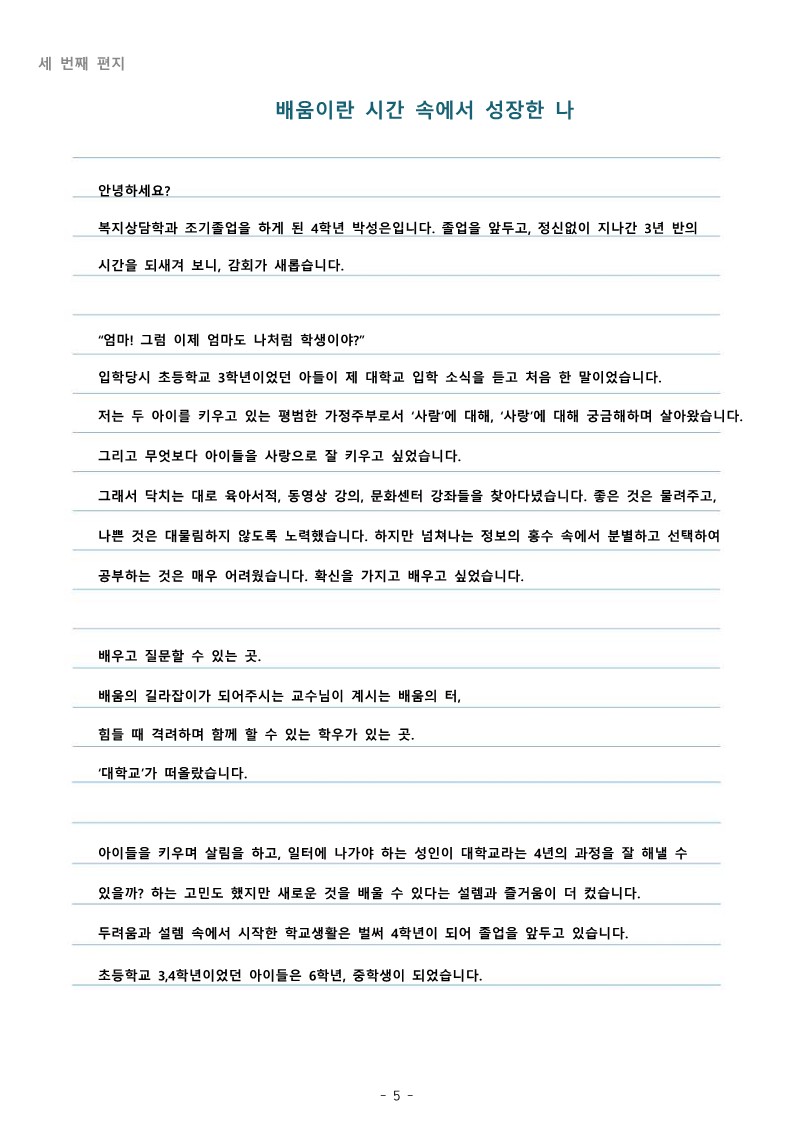 세 번째 편지
배움이란 시간 속에서 성장한 나
안녕하세요?
복지상담학과 조기졸업을 하게 된 4학년 박성은입니다. 졸업을 앞두고, 정신없이 지나간 3년 반의
시간을 되새겨 보니, 감회가 새롭습니다.
“엄마! 그럼 이제 엄마도 나처럼 학생이야?”
입학당시 초등학교 3학년이었던 아들이 제 대학교 입학 소식을 듣고 처음 한 말이었습니다.
저는 두 아이를 키우고 있는 평범한 가정주부로서 ‘사람’에 대해, ‘사랑’에 대해 궁금해하며 살아왔습니다.
그리고 무엇보다 아이들을 사랑으로 잘 키우고 싶었습니다.
그래서 닥치는 대로 육아서적, 동영상 강의, 문화센터 강좌들을 찾아다녔습니다. 좋은 것은 물려주고,
나쁜 것은 대물림하지 않도록 노력했습니다. 하지만 넘쳐나는 정보의 홍수 속에서 분별하고 선택하여
공부하는 것은 매우 어려웠습니다. 확신을 가지고 배우고 싶었습니다.
배우고 질문할 수 있는 곳.
배움의 길라잡이가 되어주시는 교수님이 계시는 배움의 터,
힘들 때 격려하며 함께 할 수 있는 학우가 있는 곳.
‘대학교’가 떠올랐습니다.
아이들을 키우며 살림을 하고, 일터에 나가야 하는 성인이 대학교라는 4년의 과정을 잘 해낼 수
있을까? 하는 고민도 했지만 새로운 것을 배울 수 있다는 설렘과 즐거움이 더 컸습니다.
두려움과 설렘 속에서 시작한 학교생활은 벌써 4학년이 되어 졸업을 앞두고 있습니다.
초등학교 3,4학년이었던 아이들은 6학년, 중학생이 되었습니다.
- 5 -